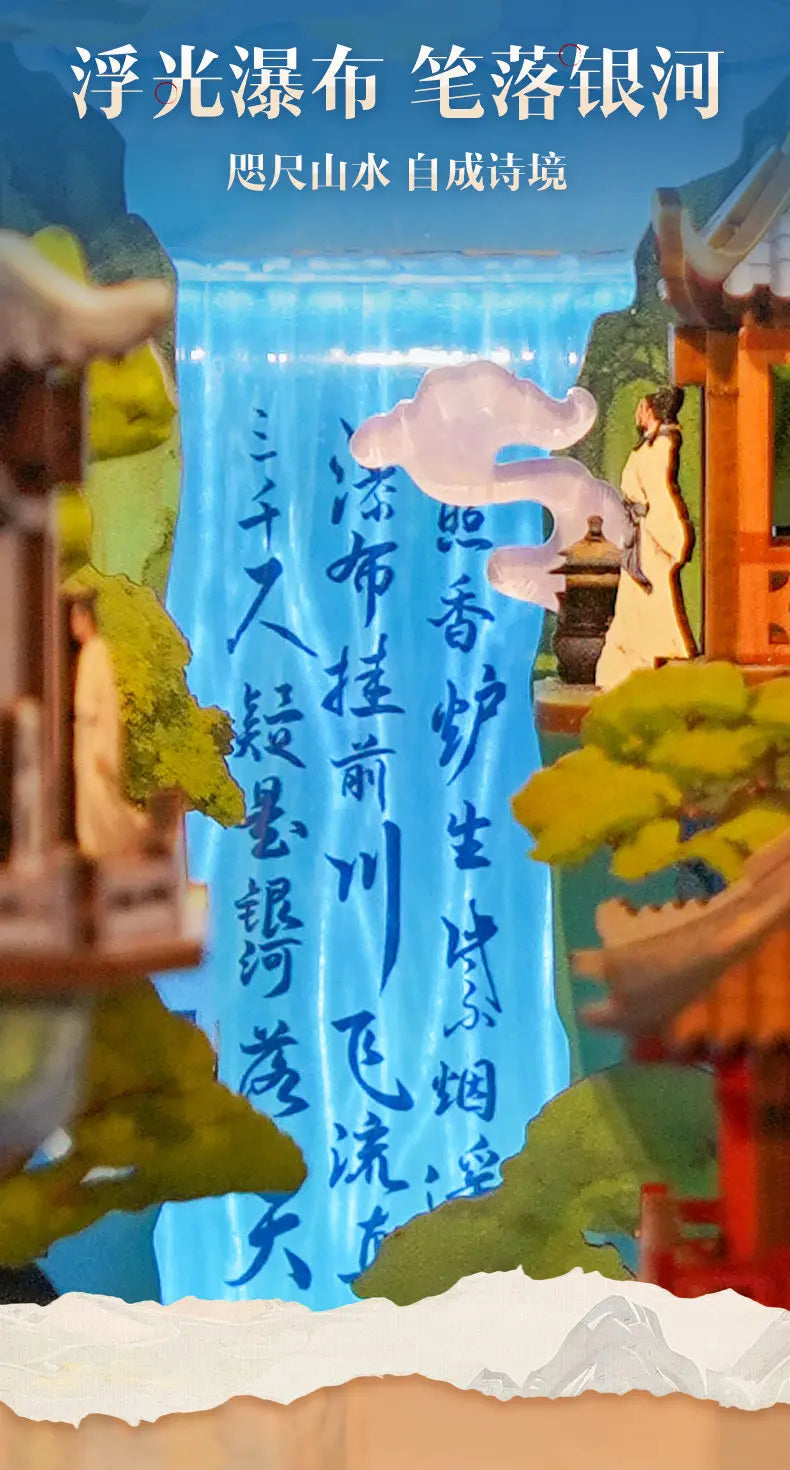 浮光瀑布 笔落银河
咫尺山水 自成诗境
照香炉生紫烟遥
瀑布挂前川飞流直
三千尺疑是银河落天